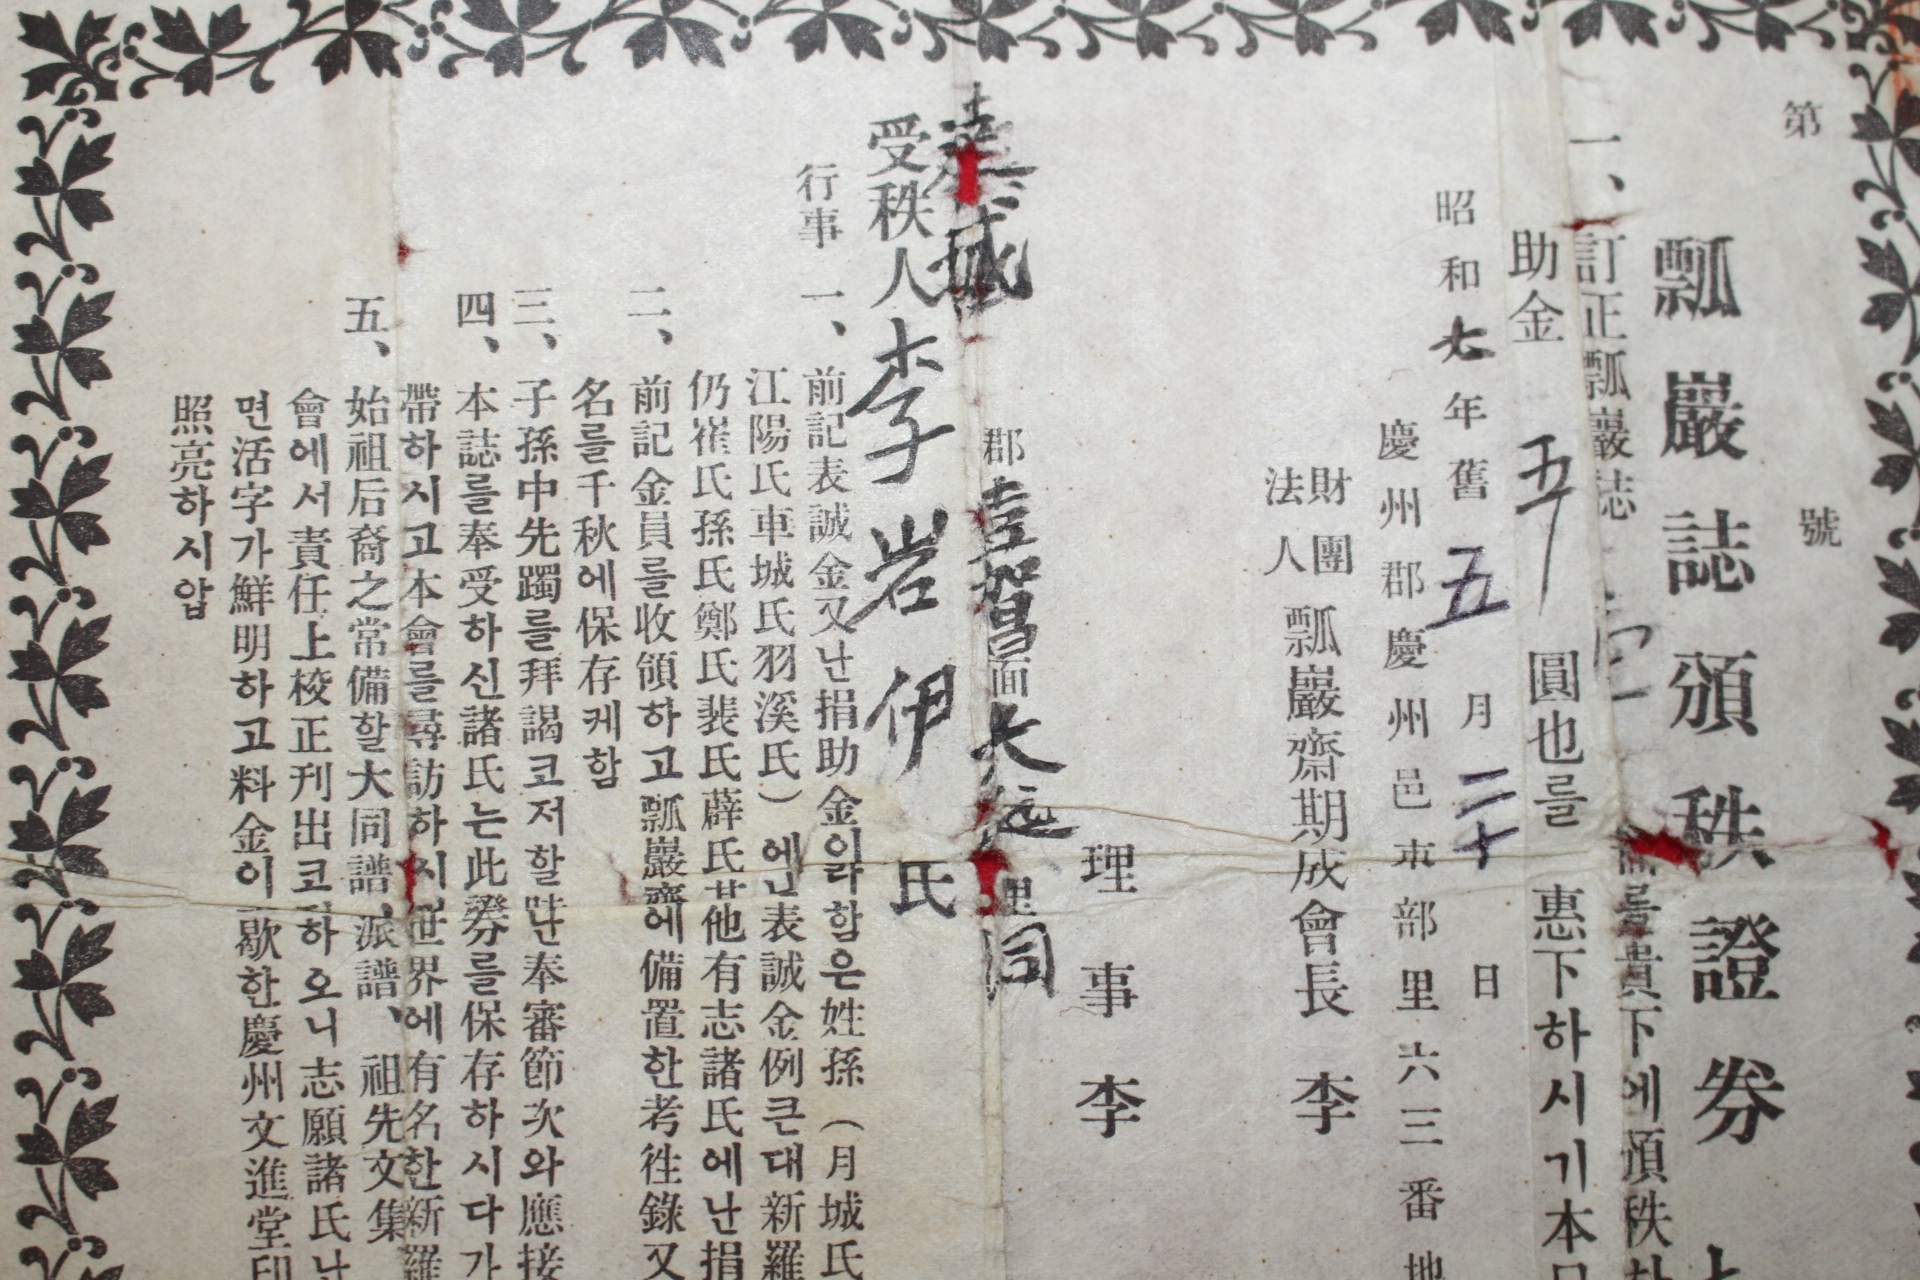 第 號
瓢巖誌頒秩證券
一、訂正瓢巖誌 를貴下에頒秩
助金 五 圓也를 惠下하시기本
昭和七年舊五月二十日
慶州郡慶州邑 部里六三番地
財團
法人
瓢巖齋期成會長 李
理事 李
達城郡 面 里同
受秩人李岩伊氏
行事
一、前記表誠金又난捐助金이라함은姓孫(月城氏
江陽氏車城氏羽溪氏)에난表誠金例큰대新羅
仍崔氏孫氏鄭氏裴氏薛氏其他有志諸氏에난捐
二、前記金員를收領하고瓢巖齋에備置한考徃錄又
名를千秋에保存케함
三、子孫中先躅를拜謁코저할 奉審節次와應接
四、本誌를奉受하신諸氏는此券를保存하시다가
帶하시고本會를尋訪하시 世界에有名한新羅
五、始祖后裔之常備할大同譜、派譜、祖先文集
會에서責任上校正刊出코 하오니志願諸氏난
면活字가鮮明하고料金이 歇한慶州文進堂印
照亮하시압